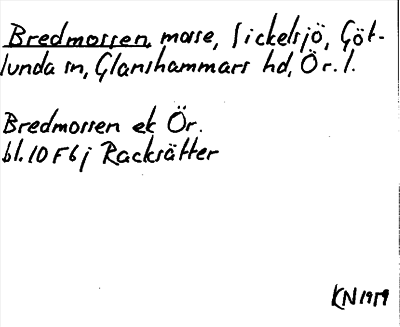 Bredmossen, mosse, Sickelsjö, Göt-
lunda sn, Glanshammars hd, Ör. l.
Bredmossen ek Ör.
bl. 10 F 6 j Racksätter
KN 1959